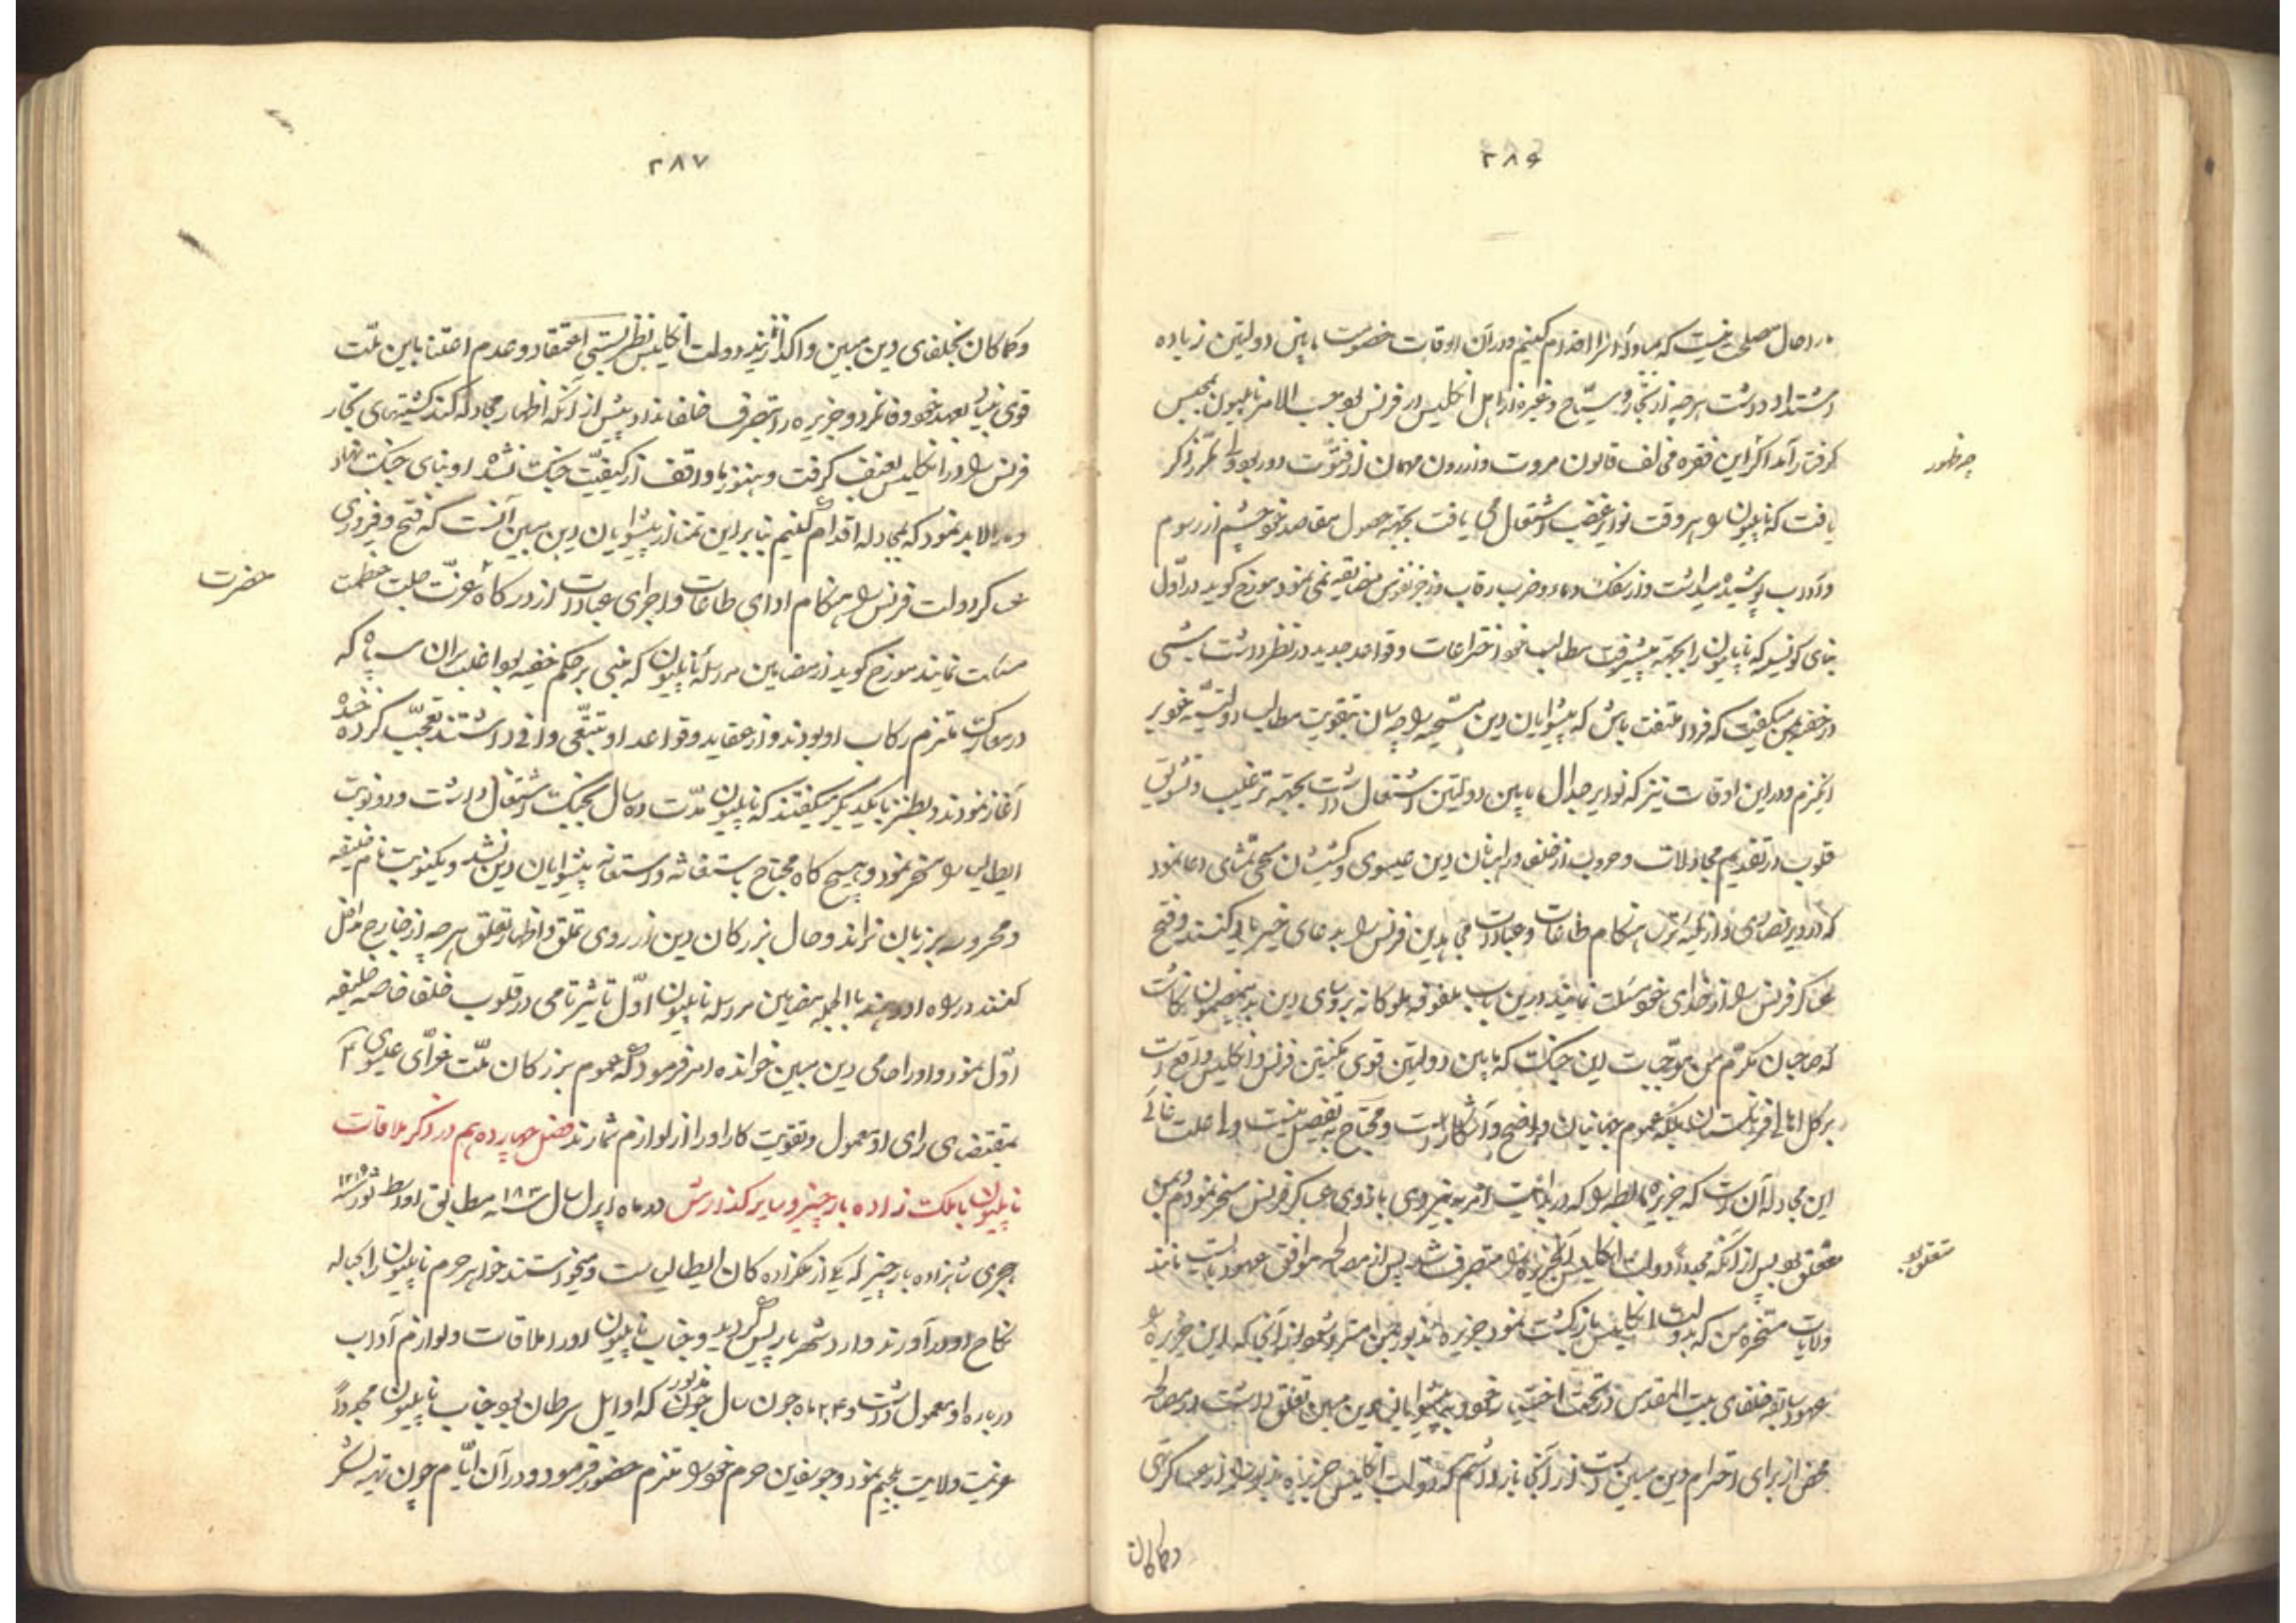 ۲۸۶
در حال مصلحت نیست که بمبادله آنرا اقدام کنیم و در آن اوقات خصومت مابین دولتین زیاده
اشتداد داشت هر چه از تجار و سیّاح و غیره از اهل انکلیس در فرنس بود بحسب الامر ناپلیون بمحبس
کرفتار آمد اکر این فقره مخالف قانون مروت و آزردن مهمان از فتوّت دور بود ذکر
چه ظهور
یافت که ناپلیون را هر وقت نوایر غضب اشتعال می یافت بجهته حصول مقاصد خود چشم از رسوم
و آداب پوشیده میداشت و از سفک دماء و ضرب رقاب و زجر نفوس مضایقه نمی نمود مورخ کوید در اوّل
بنای کونسیو که ناپلیون را بجهته پیشرفت مطالب خود اختراعات و قواعد جدید در نظر داشت شبی
در خفیه بمن میکفت که فردا ملتفت باش که پیشوایان دین مسیحیه را چه سان بتقویت مطالب دولتیه خود بر
انکیزم و در این اوقات نیز که نوایر جدال مابین دولتین اشتعال داشت بجهته ترغیب و تشویق
قلوب در تقدیم مجادلات و حروب از خلفا و راهبان دین عیسوی و کشیشان مسیحی تمنّای دعا نمود
که در دیر نصاری و از کلیسا ترسا هنکام طاعات و عبادات مجاهدین فرنس را بدعای خیر یاد کنند و فتح
عساکر فرنس را از خدای خود مسئلت نمایند در این باب ملفوفه ملوکانه بروسای دین بدینمضمون نکاشت
که صاحبان مکرّم من موجبات این جنک که مابین دولتین قوی مکنتین فرنس و انکلیس واقع است
بر کل اهالی فرنکستان بلکه عموم جهانیان واضح و آشکار است و محتاج به تفصیل نیست و اصلت غائی
این مجادله آن است که جزیره مالطه را که در بدایت امر به نیروی بازوی عساکر فرنس مسخر نمودم بمن
متعلق بود پس از آنکه مجدداً دولت انکلیس آنجزیره را متصرف شد پس از مصالحه موافق عهود بایست مانند
متعلق بود
ولایات متسخره من که بدولت انکلیس بازکشت نمود جزیره مذبور بمن مسترد شود از آنجا که این جزیره را
عهود سابقه خلفای بیت المقدس در تحت اختیار خود و به پیشوایان دین مبین تعلق داشت در مصالحه
محض از برای احترام دین مبین دست از آنجا بازداشتم که دولت انکلیس جزیره مذبور را از عساکر تهی
و کماکان
۲۸۷
و کماکان بخلفای دین مبین واکذارند دولت انکلیس نظر بسستی اعتقاد و عدم اعتنا باین ملّت
قوی بنیاد بعهد خود وفا نکرد و جزیره را بتصرف خلفا نداد پیش از آنکه اظهار مجادله کند کشتیهای تجار
فرنس را در انکلیس بعنف کرفت و هنوز ما واقف از کیفیّت جنک نشده او بنای جنک نهاد
و ما را لابد نمود که بمجادله اقدام کنیم بنابراین تمنا از پیشوایان دین مبین آنست که فتح و فیروزی
عساکر دولت فرنس را هنکام ادای طاعات و اجرای عبادات از درکاه عزّت جلت عظمت
حضرت
مسئلت نمایند مورخ کوید از مضامین مرسله ناپلیون که مبنی بر حکم خفیه بود اغلب سران سپاه که
در معارک ملتزم رکاب او بودند و از عقاید و قواعد او تتبّعی وافی داشتند تعجّب کرده خنده
آغاز نمودند و بطنز با یکدیکر میکفتند که ناپلیون مدّت ده سال بجنک اشتغال داشت و دو نوبت
ایطالیا را مسخر نمود و هیچ کاه محتاج باستغاثه و استعانه پیشوایان دین نشد و یکنوبت نام خلیفه
و محروسه بر زبان نراند و حال بزرکان دین از روی تملق و اظهار تعلق هر چه از خارج و داخل
کفتند در راه او دهند بالجمله مضامین مرسله ناپلیون اوّل تاثیر تامی در قلوب خلفا خاصه خلیفه
اوّل نمود و او را حامی دین مبین خوانده امر فرمود که عموم بزرکان ملّت غرّای عیسوی را
بمقتضای رای او معمول و تقویت کار او را از لوازم شمارند فصل چهاردهم در ذکر ملاقات
ناپلیون با ملک زاده بارخیز و سایر کذارش در ماه اپرل سال ۱۸۰۳ مطابق اواسط ثور سنه ۱۲۱۵
هجری شاهزاده بارخیز که یکی از ملکزاده کان ایطالیا است و میخواستند خواهر حرم ناپلیون را بحباله
نکاح او درآورند وارد شهر پاریس کردید و جناب ناپلیون او را ملاقات و لوازم آداب
درباره او معمول داشت و ۲۴ ماه جون سال مذبور که اوایل سرطان بود جناب ناپلیون مجدداً
عزیمت ولایت بلجیم نمود و جوسفاین حرم خود را ملتزم حضور فرمود و در آن ایّام چون تهیه لشکر